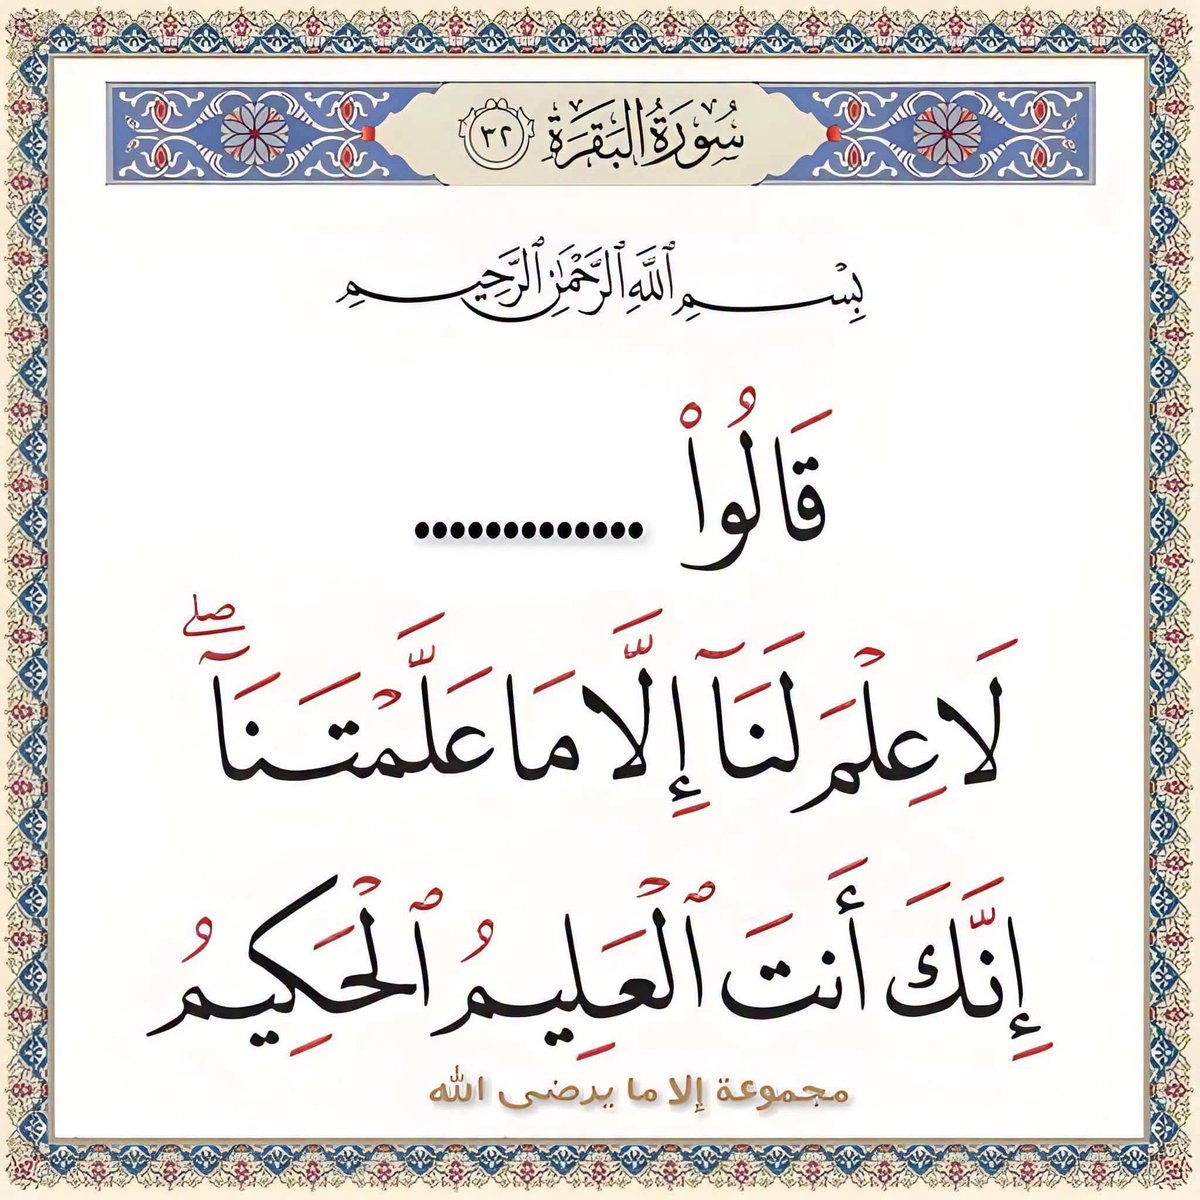 سُورَةُ البَقَرَةِ ٣٢
بِسْمِ ٱللَّهِ ٱلرَّحْمَٰنِ ٱلرَّحِيمِ
قَالُوا۟ .............
لَا عِلْمَ لَنَآ إِلَّا مَا عَلَّمْتَنَآ ۖ
إِنَّكَ أَنتَ ٱلْعَلِيمُ ٱلْحَكِيمُ
مجموعة إلا ما يرضى الله